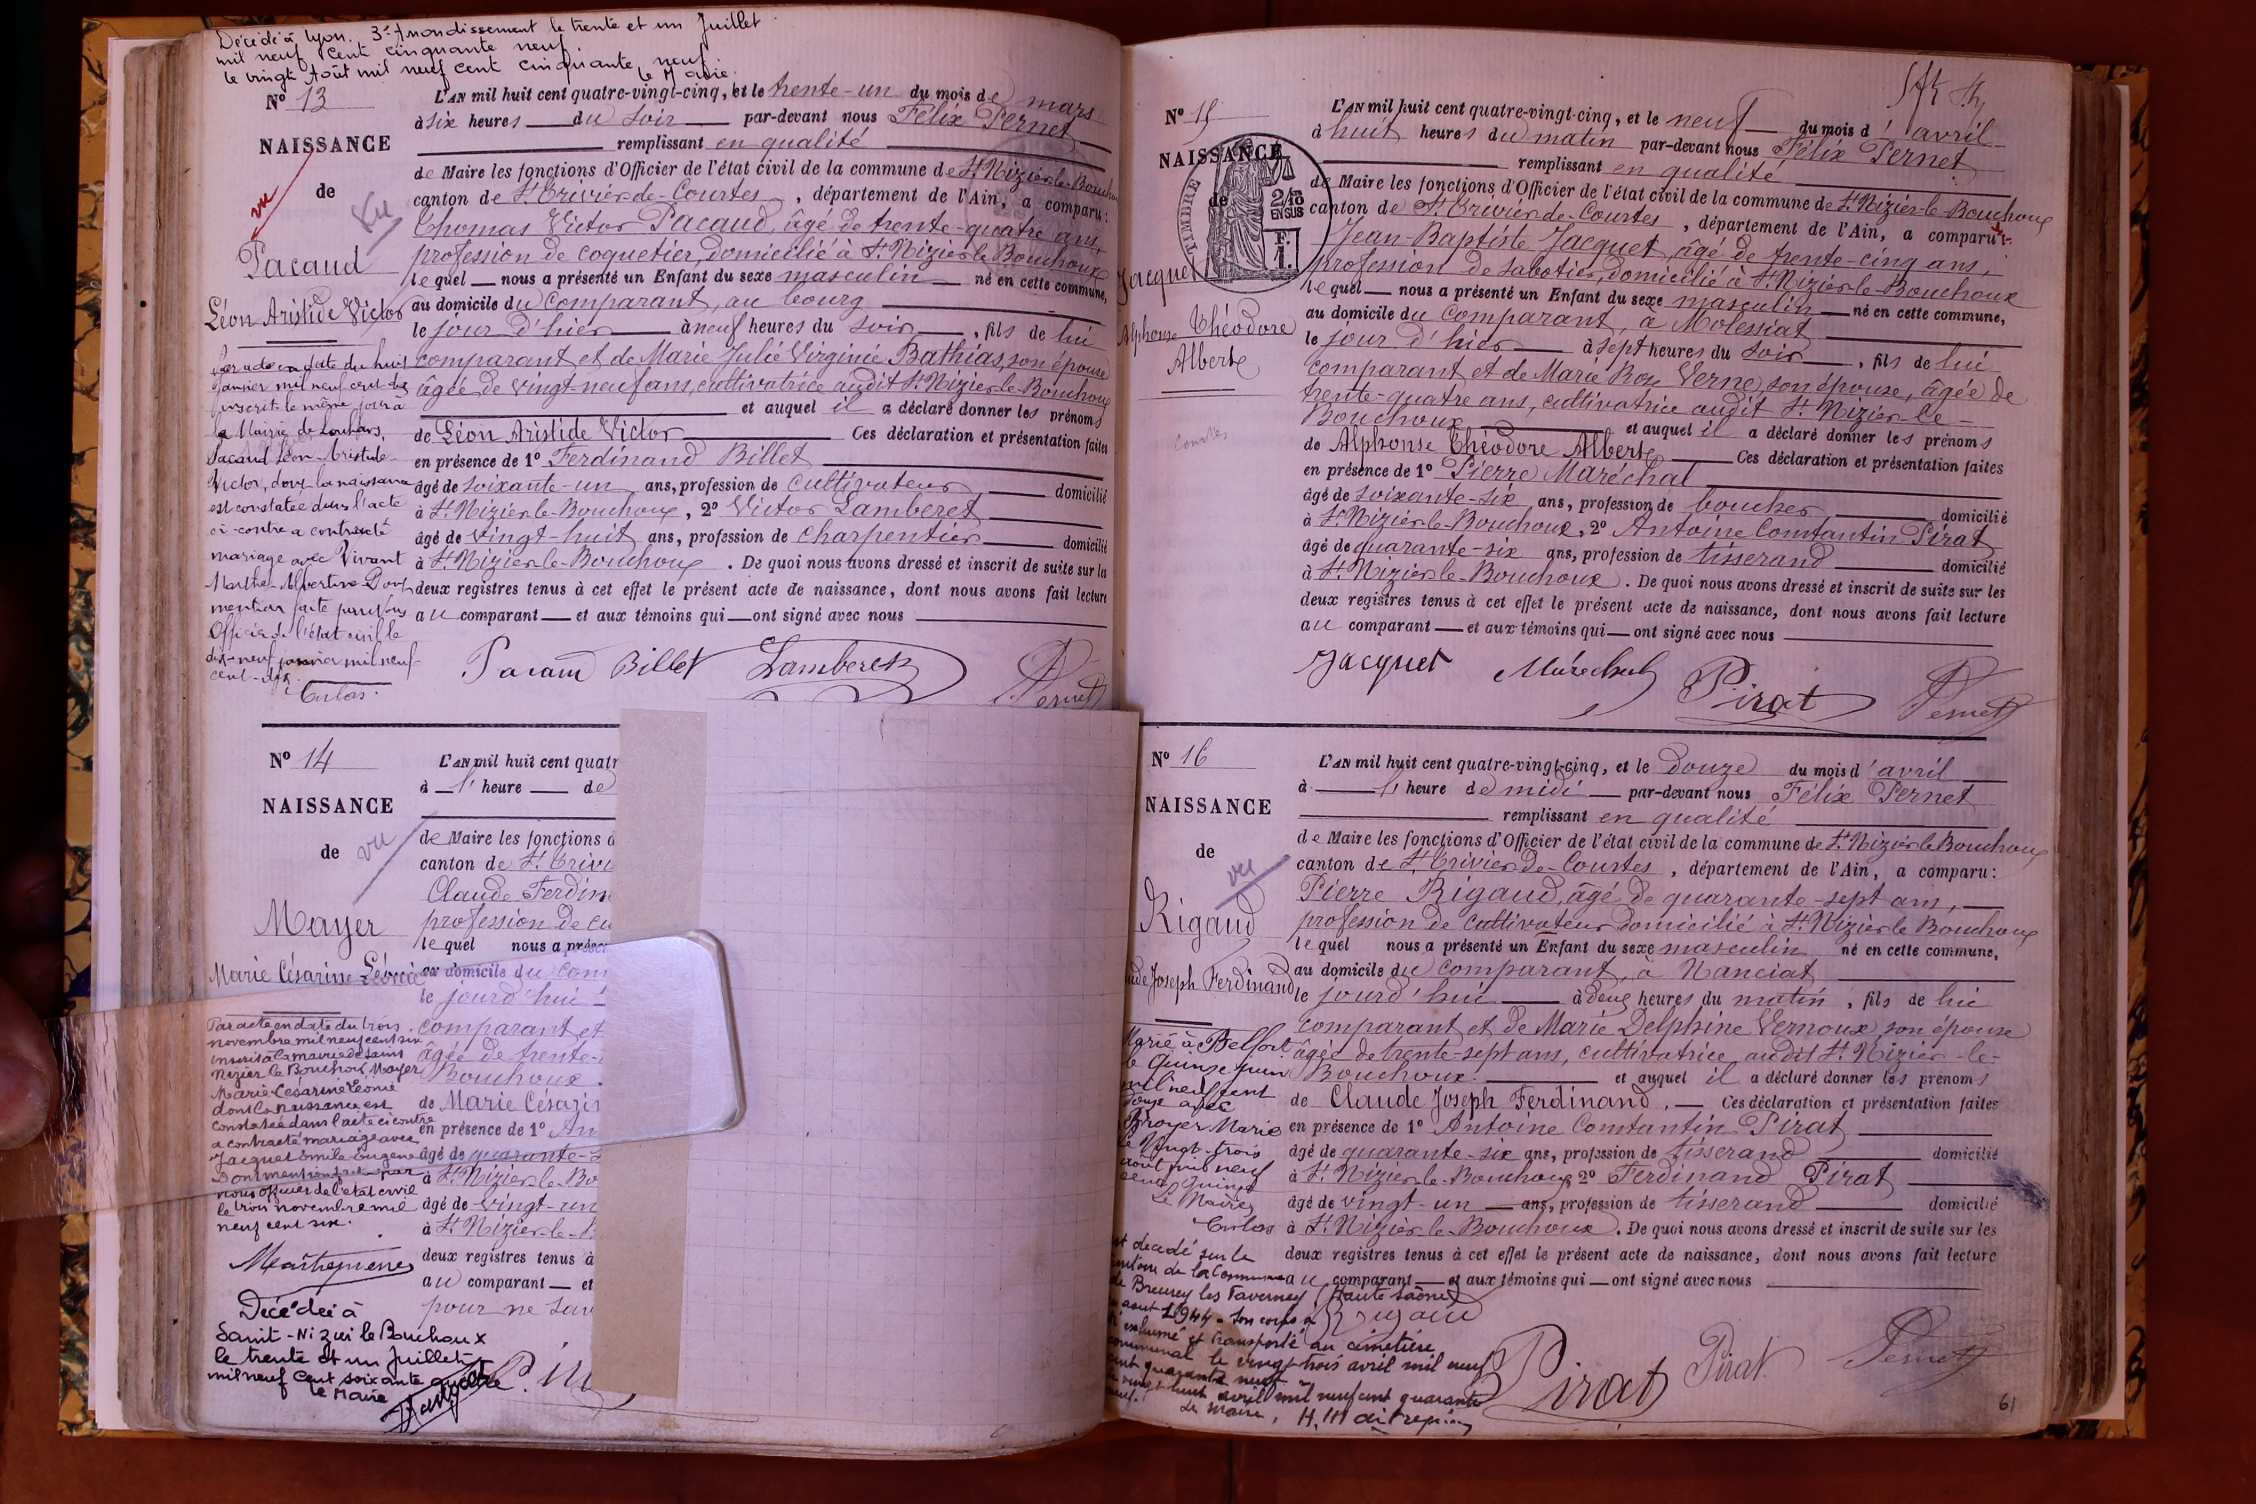 Décédé à Lyon. 3e Arrondissement le trente et un Juillet
mil neuf cent cinquante neuf.
le vingt Août mil neuf cent cinquante neuf.
le Maire.
No 13
NAISSANCE
de
vu
vu
Pacaud
Léon Aristide Victor
Par acte en date du huit
Janvier mil neuf cent dix
inscrit le même jour à
la Mairie de Louhans,
Pacaud Léon-Aristide-
Victor, dont la naissance
est constatée dans l'acte
ci-contre a contracté
mariage avec Vivant
Marthe-Albertine. Dont
mention faite par nous
Officier de l'état civil le
dix-neuf janvier mil neuf-
cent-dix.
L'AN mil huit cent quatre-vingt-cinq, et le trente-un du mois de mars
à six heures du soir par-devant nous Félix Pernet
remplissant en qualité
de Maire les fonctions d'Officier de l'état civil de la commune de St Nizier-le-Bouchoux
canton de St Trivier-de-Courtes, département de l'Ain, a comparu:
Thomas Victor Pacaud, âgé de trente-quatre ans,
profession de coquetier, domicilié à St Nizier-le-Bouchoux
lequel nous a présenté un Enfant du sexe masculin né en cette commune,
au domicile du comparant, au bourg
le jour d'hier à neuf heures du soir, fils de lui
comparant et de Marie Julie Virginie Bathias, son épouse
âgée de vingt-neuf ans, cultivatrice audit St Nizier-le-Bouchoux
et auquel il a déclaré donner les prénoms
de Léon Aristide Victor Ces déclaration et présentation faites
en présence de 1o Ferdinand Billet
âgé de soixante-un ans, profession de cultivateur domicilié
à St Nizier-le-Bouchoux, 2o Victor Lamberet
âgé de vingt-huit ans, profession de charpentier domicilié
à St Nizier-le-Bouchoux. De quoi nous avons dressé et inscrit de suite sur les
deux registres tenus à cet effet le présent acte de naissance, dont nous avons fait lecture
au comparant et aux témoins qui ont signé avec nous
Pacaud Billet Lamberet Pernet
No 14
NAISSANCE
de
vu
Mayer
Marie Césarine Léonie
Par acte en date du trois
novembre mil neuf cent six
inscrit à la mairie de Saint
Nizier le Bouchoux Mayer
Marie Césarine Léonie
dont la naissance est
constatée dans l'acte ci contre
a contracté mariage avec
Jacquet Emile Eugène
Dont mention faite par
nous officier de l'état civil
le trois novembre mil
neuf cent six.
Décédée à
Saint-Nizier le Bouchoux
le trente et un Juillet
mil neuf cent soixante quatre
le Maire
L'AN mil huit cent quatr
à l' heure de
de Maire les fonctions d
canton de St Trivi
Claude Ferdin
profession de cu
lequel nous a prése
au domicile du com
le jourd'hui
comparant et
âgée de trente-
Bouchoux.
de Marie Césari
en présence de 1o An
âgé de quarante-s
à St Nizier-le-Bo
âgé de vingt-un
à St Nizier-le-B
deux registres tenus à
au comparant et
pour ne sav
No 15
NAISSANCE
de
TIMBRE
2/10
EN SUS
F.
1.
Jacquet
Alphonse Théodore
Alberte
L'AN mil huit cent quatre-vingt-cinq, et le neuf du mois d'avril
à huit heures du matin par-devant nous Félix Pernet
remplissant en qualité
de Maire les fonctions d'Officier de l'état civil de la commune de St Nizier-le-Bouchoux
canton de St Trivier-de-Courtes, département de l'Ain, a comparu:
Jean-Baptiste Jacquet, âgé de trente-cinq ans,
profession de sabotier, domicilié à St Nizier-le-Bouchoux
lequel nous a présenté un Enfant du sexe masculin né en cette commune,
au domicile du comparant, à Molessiat
le jour d'hier à sept heures du soir, fils de lui
comparant et de Marie Rose Verne, son épouse, âgée de
trente-quatre ans, cultivatrice audit St Nizier-le-
Bouchoux et auquel il a déclaré donner les prénoms
de Alphonse Théodore Alberte Ces déclaration et présentation faites
en présence de 1o Pierre Maréchal
âgé de soixante-six ans, profession de boucher domicilié
à St Nizier-le-Bouchoux, 2o Antoine Constantin Pirat
âgé de quarante-six ans, profession de tisserand domicilié
à St Nizier-le-Bouchoux. De quoi nous avons dressé et inscrit de suite sur les
deux registres tenus à cet effet le présent acte de naissance, dont nous avons fait lecture
au comparant et aux témoins qui ont signé avec nous
Jacquet Maréchal Pirat Pernet
No 16
NAISSANCE
de
vu
Rigaud
ude Joseph Ferdinand
Marié à Belfort
le Quinze juin
mil neuf cent
douze avec
Broyer Marie
le Vingt-trois
août mil neuf
cent quinze
Le Maire,
st décédé sur le
de la Commune
de Breurey les Faverney (Haute Saône)
août 1944. Son corps a
exhumé et transporté au cimetière
communal le vingt-trois avril mil neuf
cent quarante neuf.
vingt huit avril mil neuf cent quarante
neuf.
Le Maire,
L'AN mil huit cent quatre-vingt-cinq, et le douze du mois d'avril
à l' heure de midi par-devant nous Félix Pernet
remplissant en qualité
de Maire les fonctions d'Officier de l'état civil de la commune de St Nizier le Bouchoux
canton de St Trivier-de-Courtes, département de l'Ain, a comparu:
Pierre Rigaud, âgé de quarante-sept ans,
profession de cultivateur domicilié à St Nizier le Bouchoux
lequel nous a présenté un Enfant du sexe masculin né en cette commune,
au domicile du comparant, à Nanciat
le jourd'hui à deux heures du matin, fils de lui
comparant et de Marie Delphine Vernoux, son épouse
âgée de trente-sept ans, cultivatrice audit St Nizier-le-
Bouchoux. et auquel il a déclaré donner les prénoms
de Claude Joseph Ferdinand. Ces déclaration et présentation faites
en présence de 1o Antoine Constantin Pirat
âgé de quarante-six ans, profession de tisserand domicilié
à St Nizier-le-Bouchoux 2o Ferdinand Pirat
âgé de vingt-un ans, profession de tisserand domicilié
à St Nizier-le-Bouchoux. De quoi nous avons dressé et inscrit de suite sur les
deux registres tenus à cet effet le présent acte de naissance, dont nous avons fait lecture
au comparant et aux témoins qui ont signé avec nous
Rigaud
Pirat Pirat. Pernet
61